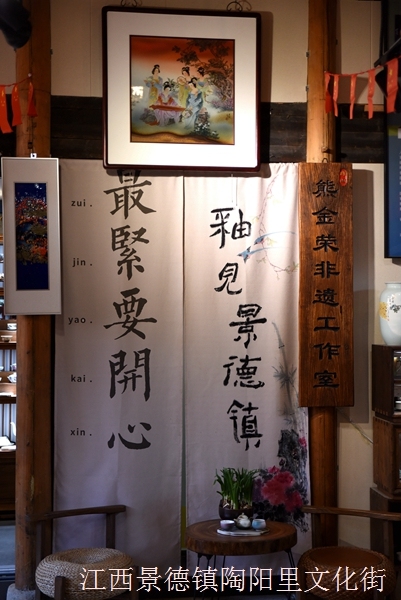 最緊要開心
zui.
jin.
yao.
kai.
xin.
釉見景德镇
熊金荣非遗工作室
江西景德镇陶阳里文化街